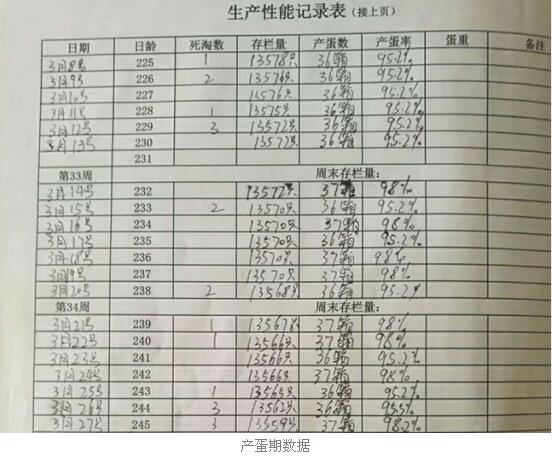 生产性能记录表（接上页）
日期 日龄 死淘数 存栏量 产蛋数 产蛋率 蛋重 备注
3月8号 225 1 13578只 36箱 95.2%
3月9号 226 2 13576只 36箱 95.2%
3月10号 227 13576只 36箱 95.2%
3月11号 228 1 13575只 36箱 95.2%
3月12号 229 3 13572只 36箱 95.2%
3月13号 230 13572只 36箱 95.2%
231
第33周 周末存栏量：
3月14号 232 13572只 37箱 98%
3月15号 233 2 13570只 36箱 95.2%
3月16号 234 13570只 37箱 98%
3月17号 235 13570只 36箱 95.2%
3月18号 236 13570只 37箱 98%
3月19号 237 13570只 37箱 98%
3月20号 238 2 13568只 36箱 95.2%
第34周 周末存栏量：
3月21号 239 1 13567只 37箱 98%
3月22号 240 1 13566只 37箱 98%
3月23号 241 13566只 36箱 95.2%
3月24号 242 13566只 37箱 98%
3月25号 243 1 13565只 36箱 95.2%
3月26号 244 3 13562只 36箱 95.5%
3月27号 245 3 13559只 37箱 98.2%
产蛋期数据